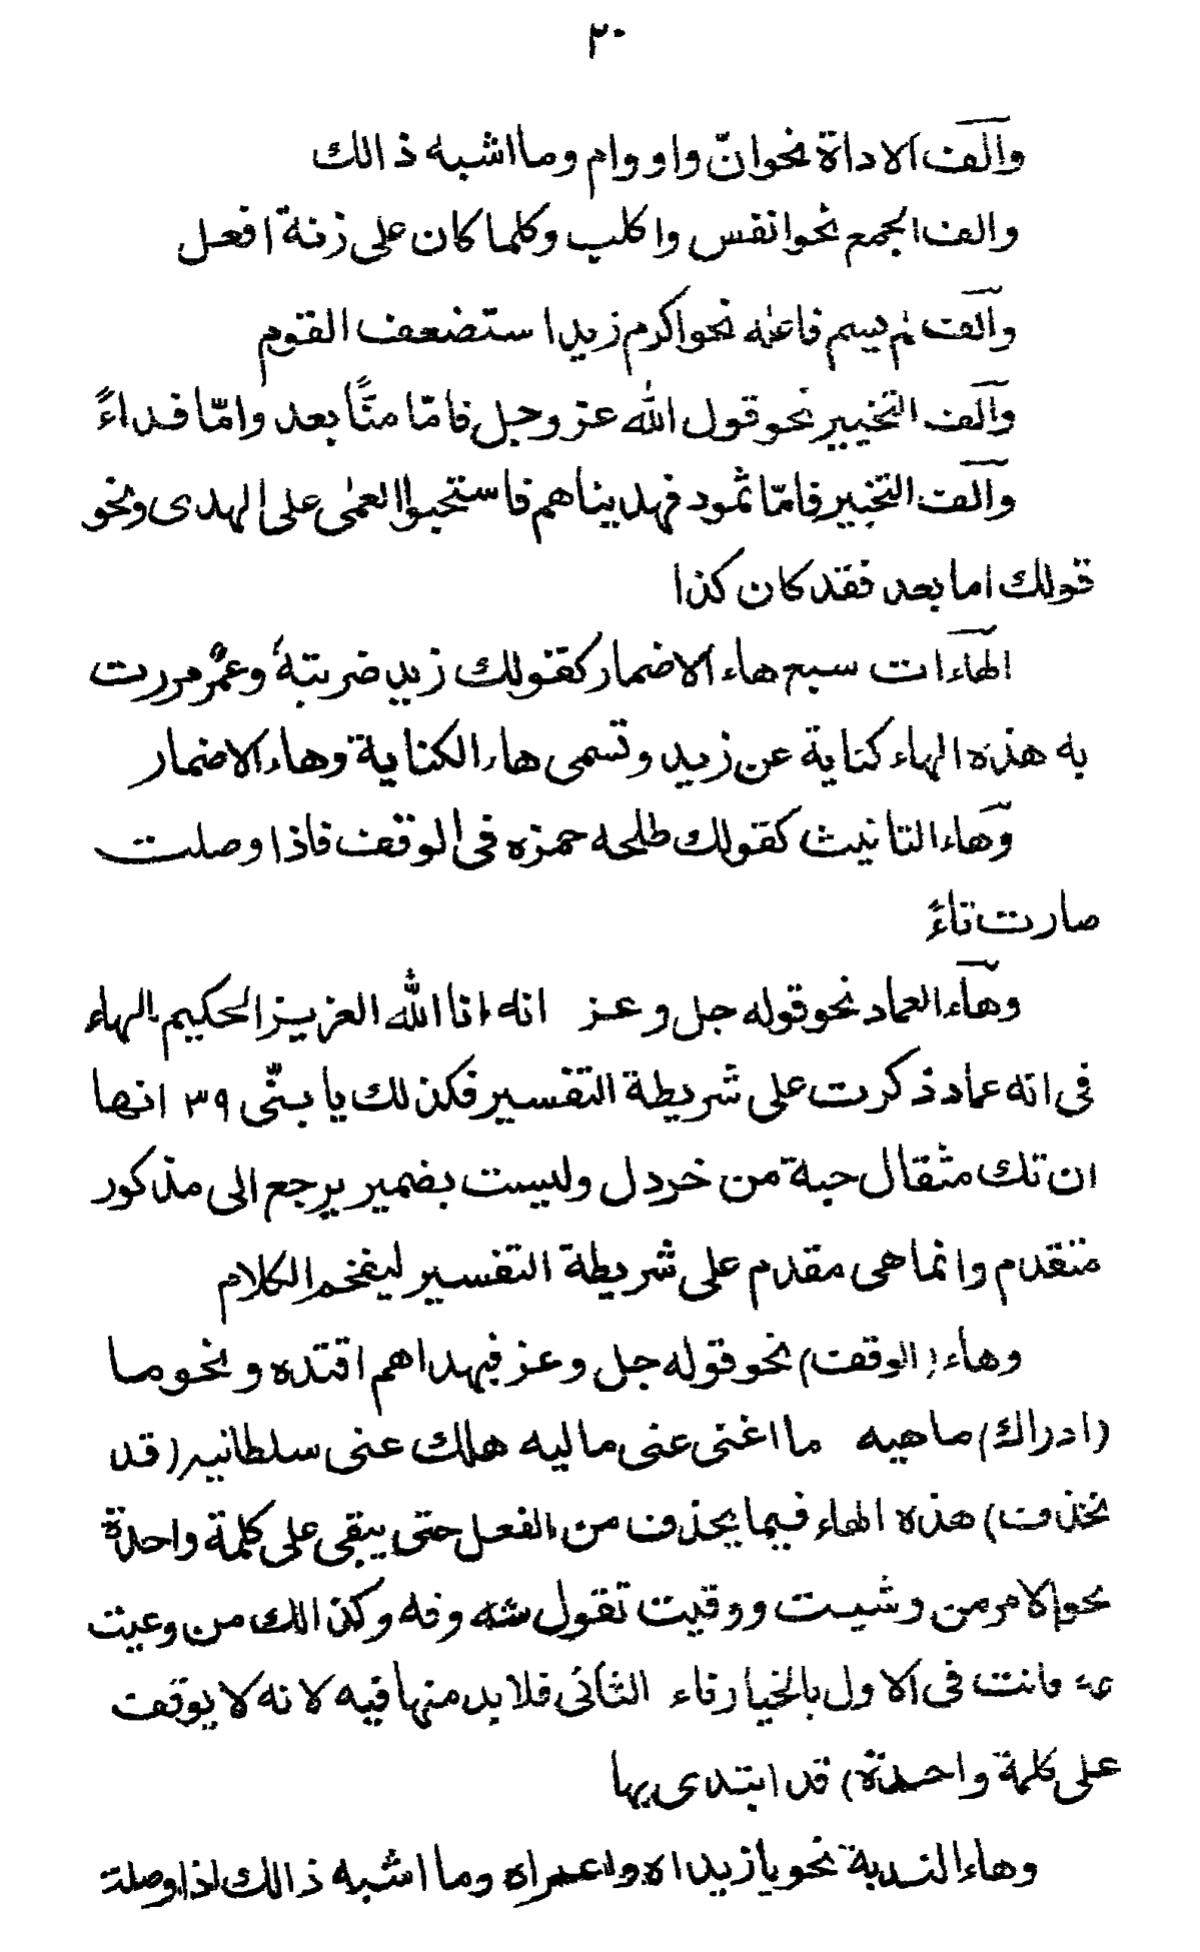 ٣٠
والف الاداة نحو انّ واو وام وما اشبه ذالك
والف الجمع نحو انفس واكلب وكلما كان على زنة افعل
والف لم يسم فاعله نحو اكرم زيد استضعف القوم
والف التخيير نحو قول الله عز وجل فامّا منًّا بعد وامّا فداءً
والف التخبير فامّا ثمود فهديناهم فاستحبوا العمى على الهدى ونحو
قولك اما بعد فقد كان كذا
الهاءات سبع هاء الاضمار كقولك زيد ضربتهُ وعمرٌو مررت
به هذه الهاء كناية عن زيد وتسمى هاء الكناية وهاء الاضمار
وهاء التانيث كقولك طلحه حمزه فى الوقف فاذا وصلت
صارت تاءً
وهاء العماد نحو قوله جل وعز انه انا الله العزيز الحكيم الهاء
فى انه عماد ذكرت على شريطة التفسير فكذلك يا بنّى ٣٩ انها
ان تك مثقال حبة من خردل وليست بضمير يرجع الى مذكور
متقدم وانما هى مقدم على شريطة التفسير ليفخم الكلام
وهاء (الوقف) نحو قوله جل وعز فبهداهم اقتده ونحو وما
(ادراك) ماهيه ما اغنى عنى ماليه هلك عنى سلطانيه (قد
تحذف) هذه الهاء فيما يحذف من الفعل حتى يبقى على كلمة واحدة
نحو الامر من وشيت ووقيت تقول شه وقه وكذالك من وعيت
عه فانت فى الاول بالخيار فاء الثانى فلا بد منها فيه لانه لا يوقف
على كلمة واحدة) قد ابتدى بها
وهاء الندبة نحو يا زيداه واعمراه وما اشبه ذالك اذا وصلت